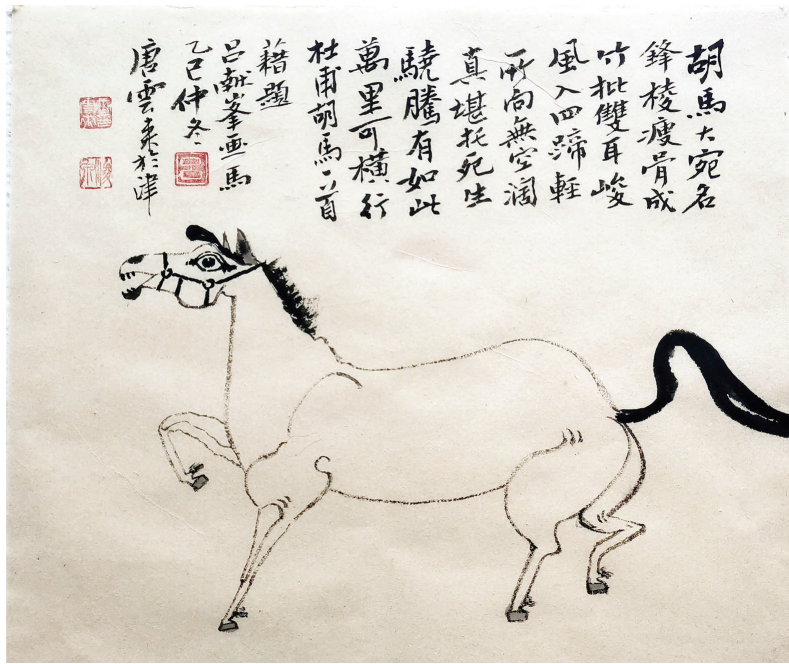 胡馬大宛名
鋒棱瘦骨成
竹批雙耳峻
風入四蹄輕
所向無空濶
真堪托死生
驍騰有如此
萬里可橫行
杜甫胡馬一首
藉題
呂献峯画馬
乙巳仲冬
唐雲來於津